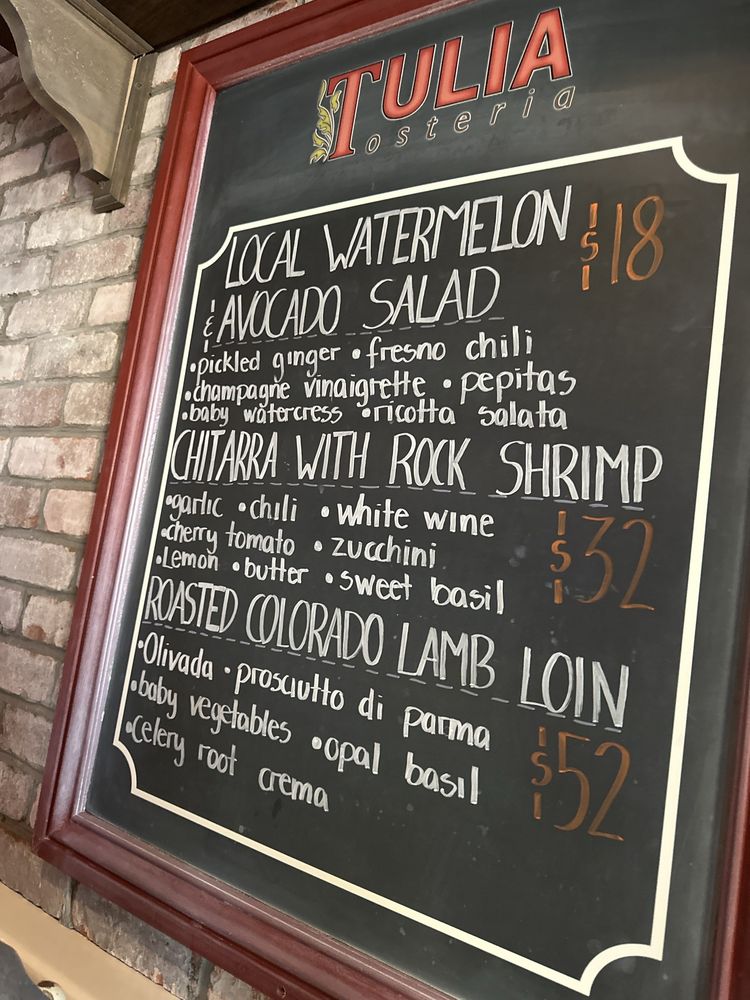 TULIA
osteria
LOCAL WATERMELON $18
& AVOCADO SALAD
•pickled ginger •fresno chili
•champagne vinaigrette •pepitas
•baby watercress •ricotta salata
CHITARRA WITH ROCK SHRIMP
•garlic •chili •white wine $32
•cherry tomato •zucchini
•Lemon •butter •sweet basil
ROASTED COLORADO LAMB LOIN
•Olivada •prosciutto di parma
•baby vegetables •opal basil $52
•Celery root crema